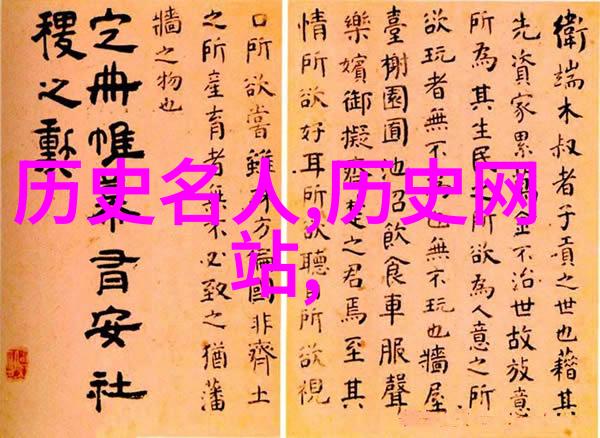 衛端木叔者子貢之世也藉其
先資家累萬金不治世故放意
所為其生民所欲為人意之所
欲玩者無不也無不玩也牆屋
臺榭園囿池沼飲食車服聲
樂嬪御擬齊之君焉至其
情所欲好耳所欲聽所欲視
口所欲嘗雖方偏國非齊土
之所產育者無不必致之猶藩
牆之物也
定冊帷幕有安社
稷之勳
历史名人,历史网
站,